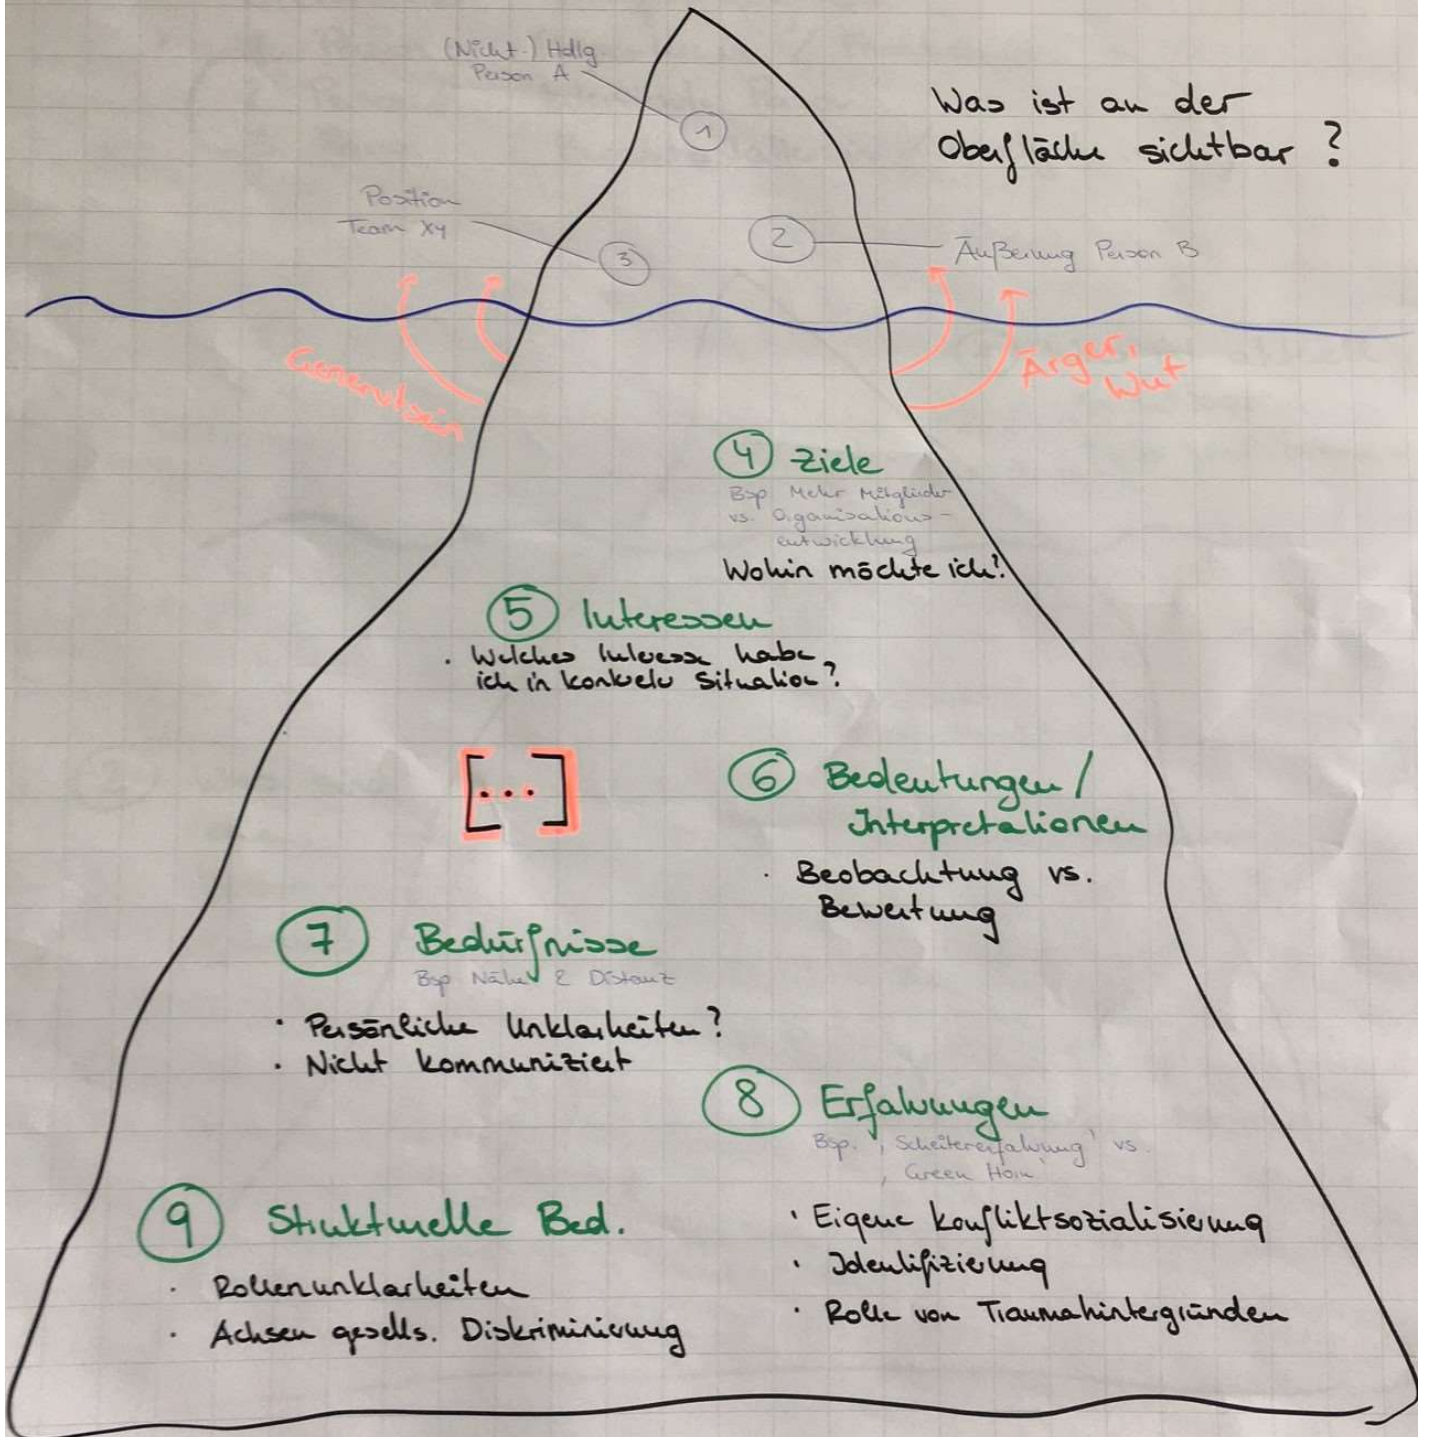 (Nicht-) Hdlg
Person A
1
Was ist an der
Oberfläche sichtbar ?
Position
Team XY
3
2
Äußerung Person B
Genervtsein
Ärger,
Wut
4 Ziele
Bsp Mehr Mitglieder
vs. Organisations-
entwicklung
Wohin möchte ich?
5 Interessen
· Welches Interesse habe
ich in konkrete Situation?
[...]
6 Bedeutungen/
Interpretationen
· Beobachtung vs.
Bewertung
7 Bedürfnisse
Bsp Nähe & Distanz
· Persönliche Unklarheiten?
· Nicht kommuniziert
8 Erfahrungen
Bsp. ‚Scheitererfahrung' vs.
‚Green Horn'
· Eigene Konfliktsozialisierung
· Identifizierung
· Rolle von Traumahintergründen
9 Strukturelle Bed.
· Rollenunklarheiten
· Achsen gesells. Diskriminierung